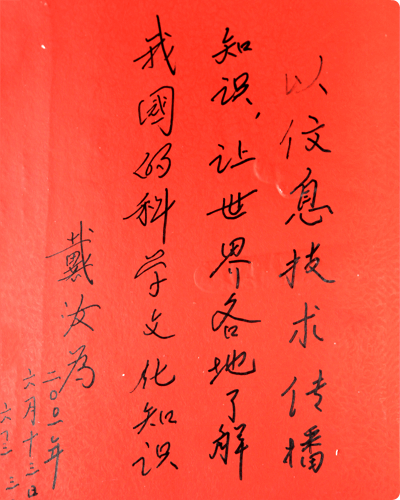 以信息技术传播
知识，让世界各地了解
我國的科学文化知识
戴汝为
二〇〇一年
六月十三日